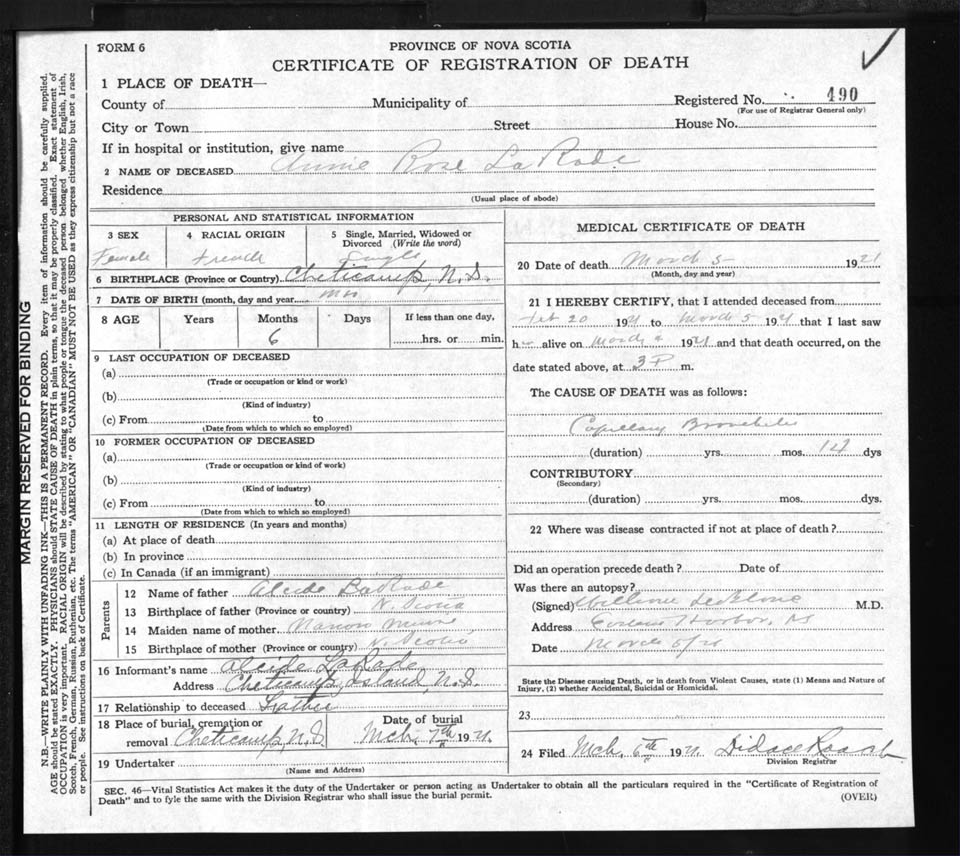 FORM 6
PROVINCE OF NOVA SCOTIA
CERTIFICATE OF REGISTRATION OF DEATH
1 PLACE OF DEATH—
County of Municipality of Registered No. 490
(For use of Registrar General only)
City or Town Street House No.
If in hospital or institution, give name
2 NAME OF DECEASED Annie Rose LaRade
Residence
(Usual place of abode)
PERSONAL AND STATISTICAL INFORMATION
3 SEX 4 RACIAL ORIGIN 5 Single, Married, Widowed or
Divorced (Write the word)
Female French Single
6 BIRTHPLACE (Province or Country) Cheticamp, N.S.
7 DATE OF BIRTH (month, day and year
8 AGE Years Months Days If less than one day,
6 hrs. or min.
9 LAST OCCUPATION OF DECEASED
(a)
(Trade or occupation or kind or work)
(b)
(Kind of industry)
(c) From to
(Date from which to which so employed)
10 FORMER OCCUPATION OF DECEASED
(a)
(Trade or occupation or kind of work)
(b)
(Kind of industry)
(c) From to
(Date from which to which so employed)
11 LENGTH OF RESIDENCE (In years and months)
(a) At place of death
(b) In province
(c) In Canada (if an immigrant)
Parents
12 Name of father Alcide LaRade
13 Birthplace of father (Province or country) N. Scotia
14 Maiden name of mother
15 Birthplace of mother (Province or country) N. Scotia
16 Informant's name Alcide LaRade
Address Cheticamp Island, N.S.
17 Relationship to deceased Father
18 Place of burial, cremation or Date of burial
removal Cheticamp, N.S. Mch. 7th 1921
19 Undertaker
(Name and Address)
MEDICAL CERTIFICATE OF DEATH
20 Date of death March 5 1921
(Month, day and year)
21 I HEREBY CERTIFY, that I attended deceased from
Feb 20 1921 to March 5 1921 that I last saw
h alive on March 1921 and that death occurred, on the
date stated above, at 3 P m.
The CAUSE OF DEATH was as follows:
Capillary Bronchitis
(duration) yrs. mos. 14 dys
CONTRIBUTORY
(Secondary)
(duration) yrs. mos. dys.
22 Where was disease contracted if not at place of death?
Did an operation precede death? Date of
Was there an autopsy?
(Signed) LeBlanc M.D.
Address Harbor, NS
Date March 5/21
State the Disease causing Death, or in death from Violent Causes, state (1) Means and Nature of
Injury, (2) whether Accidental, Suicidal or Homicidal.
23
24 Filed Mch. 6th 1921
Division Registrar
SEC. 46—Vital Statistics Act makes it the duty of the Undertaker or person acting as Undertaker to obtain all the particulars required in the "Certificate of Registration of
Death" and to fyle the same with the Division Registrar who shall issue the burial permit.
(OVER)
MARGIN RESERVED FOR BINDING
N.B.—WRITE PLAINLY WITH UNFADING INK—THIS IS A PERMANENT RECORD. Every item of information should be carefully supplied.
AGE should be stated EXACTLY. PHYSICIANS should STATE CAUSE OF DEATH in plain terms, so that it may be properly classified. Exact statement of
OCCUPATION is very important. RACIAL ORIGIN will be described by stating to what people or tongue the deceased person belonged whether English, Irish,
Scotch, French, German, Russian, Ruthenian, etc. The terms "AMERICAN" OR "CANADIAN" MUST NOT BE USED as they express citizenship but not a race
or people. See instructions on back of Certificate.